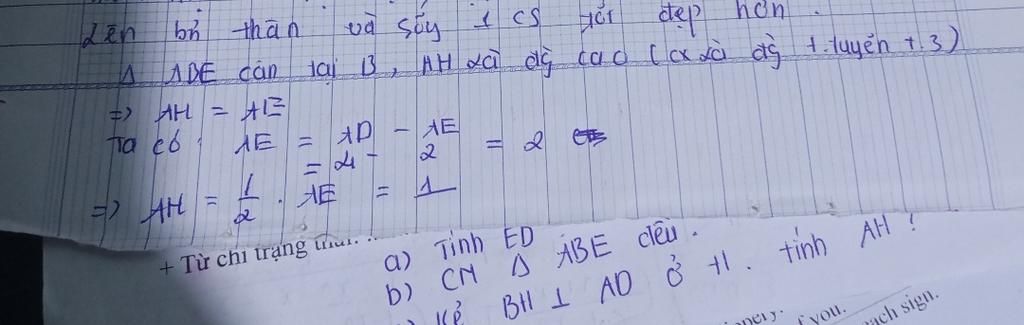 Lên bản thân và sống 1 cs tốt đẹp hơn.
Δ ADE cân tại B, AH là đg cao (cx là đg t.tuyến t.3)
=> AH = AE
Ta có: AE = AD - AE
= 4 - 2 = 2
=> AH = 1/2 . AE = 1
+ Từ chỉ trạng
a) Tính ED
b) CM Δ ABE đều.
Kẻ BH ⊥ AD ở H. tính AH!
you.
each sign.